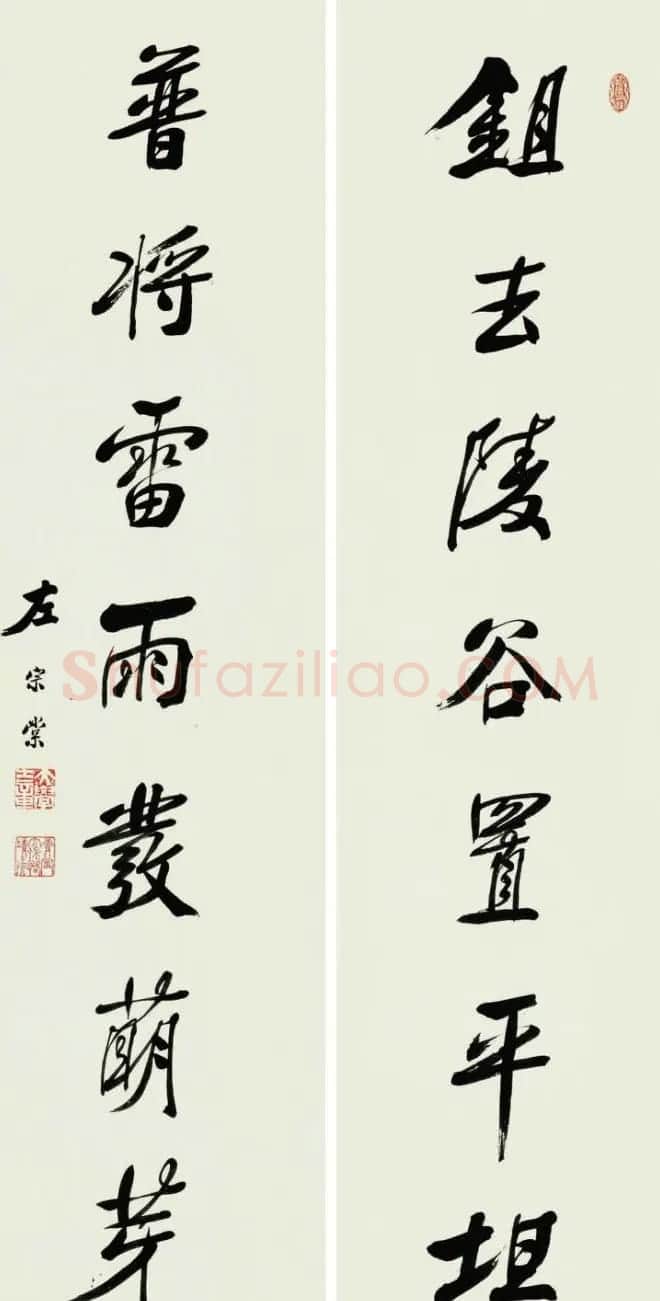 鉏去陵谷置平坦
普将雷雨發萌芽
左宗棠
Shufaziliao.com